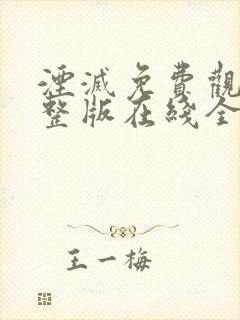 湮滅免費觀
整版在綫全
王一梅